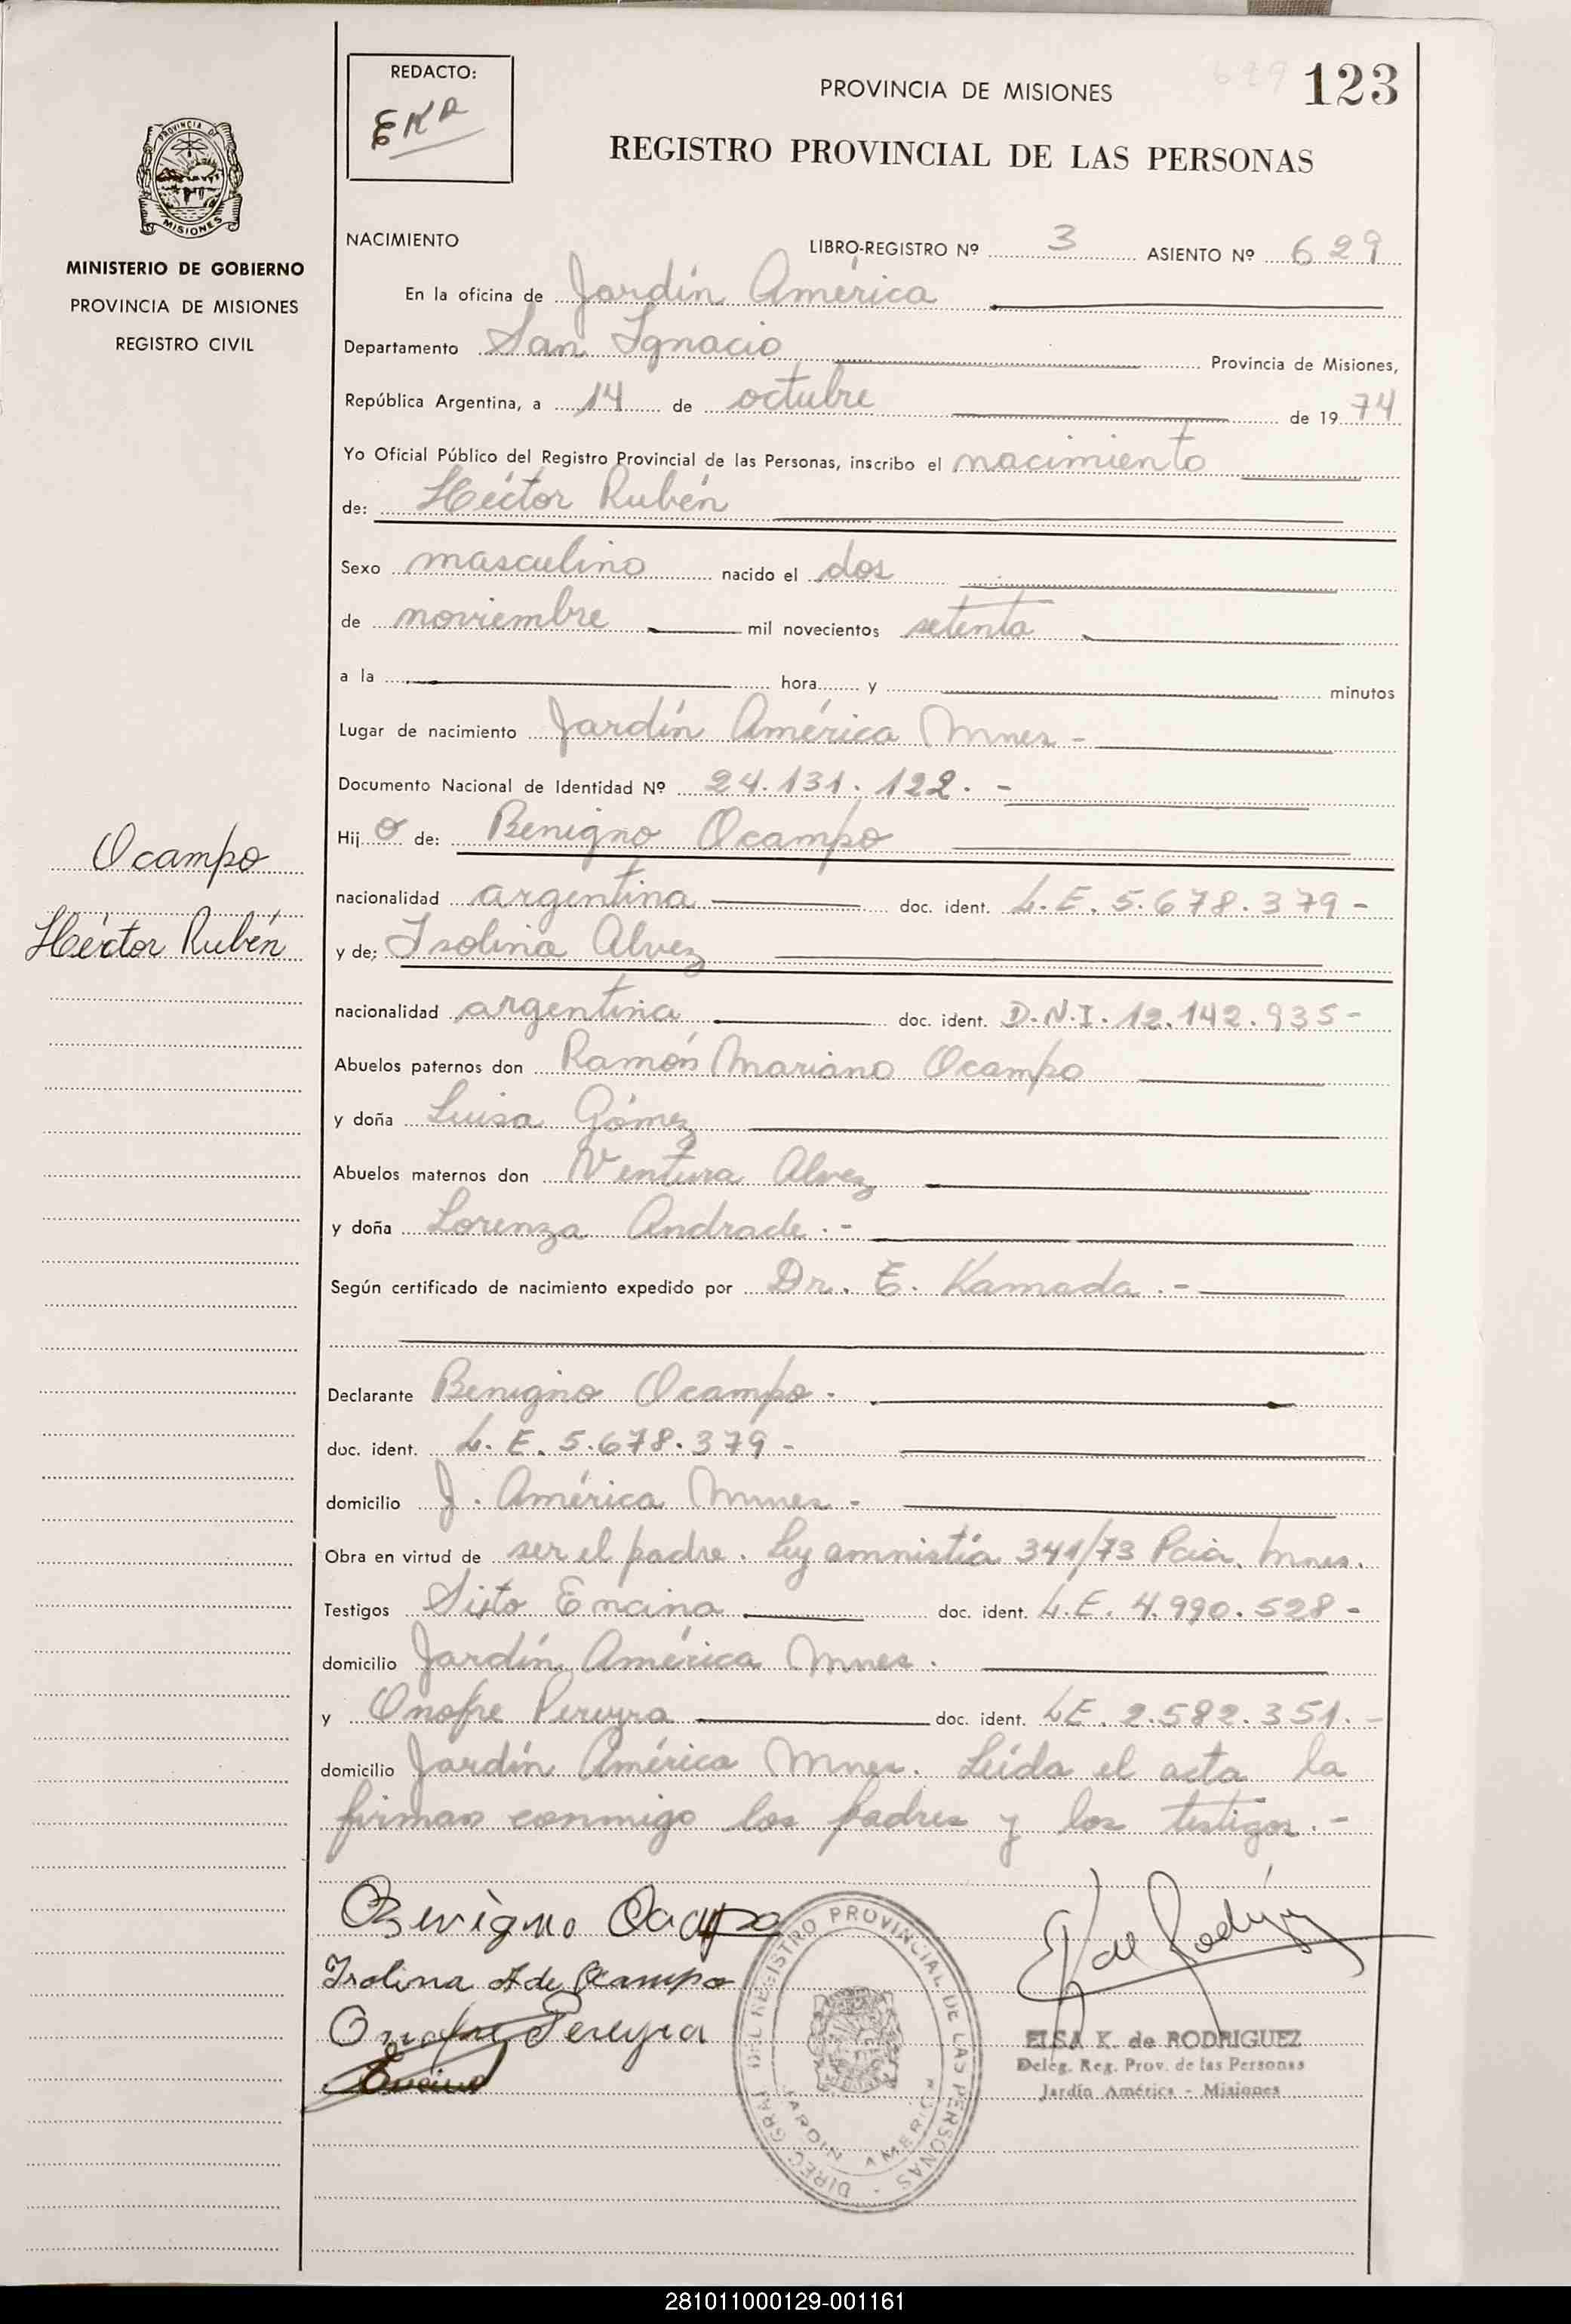 REDACTO:
EKR
PROVINCIA DE MISIONES
629
123
REGISTRO PROVINCIAL DE LAS PERSONAS
PROVINCIA DE
MISIONES
MINISTERIO DE GOBIERNO
PROVINCIA DE MISIONES
REGISTRO CIVIL
NACIMIENTO LIBRO-REGISTRO Nº 3 ASIENTO Nº 629
En la oficina de Jardín América
Departamento San Ignacio Provincia de Misiones,
República Argentina, a 14 de octubre de 1974
Yo Oficial Público del Registro Provincial de las Personas, inscribo el nacimiento
de: Héctor Rubén
Sexo masculino nacido el dos
de noviembre mil novecientos setenta
a la hora y minutos
Lugar de nacimiento Jardín América Mnes -
Documento Nacional de Identidad Nº 24.131.122. -
Hijo de: Benigno Ocampo
Ocampo
Héctor Rubén
nacionalidad argentina doc. ident. L.E. 5.678.379 -
y de: Isolina Alvez
nacionalidad argentina doc. ident. D.N.I. 12.142.935 -
Abuelos paternos don Ramón Mariano Ocampo
y doña Luisa Gómez
Abuelos maternos don Ventura Alvez
y doña Lorenza Andrade. -
Según certificado de nacimiento expedido por Dr. E. Kamada. -
Declarante Benigno Ocampo.
doc. ident. L. E. 5.678.379 -
domicilio J. América Mnes -
Obra en virtud de ser el padre. Ley amnistía 341/73 Pcia. Mnes.
Testigos Sixto Encina doc. ident. L.E. 4.990.528 -
domicilio Jardín América Mnes.
y Onofre Pereyra doc. ident. LE. 2.582.351. -
domicilio Jardín América Mnes. Leída el acta la
firman conmigo los padres y los testigos. -
Benigno Ocampo
Isolina A de Ocampo
Onofre Pereyra
Encina
E K de Rodriguez
DIREC. GRAL. DEL REGISTRO PROVINCIAL DE LAS PERSONAS -
JARDIN AMERICA
ELSA K. de RODRIGUEZ
Deleg. Reg. Prov. de las Personas
Jardín América - Misiones
281011000129-001161